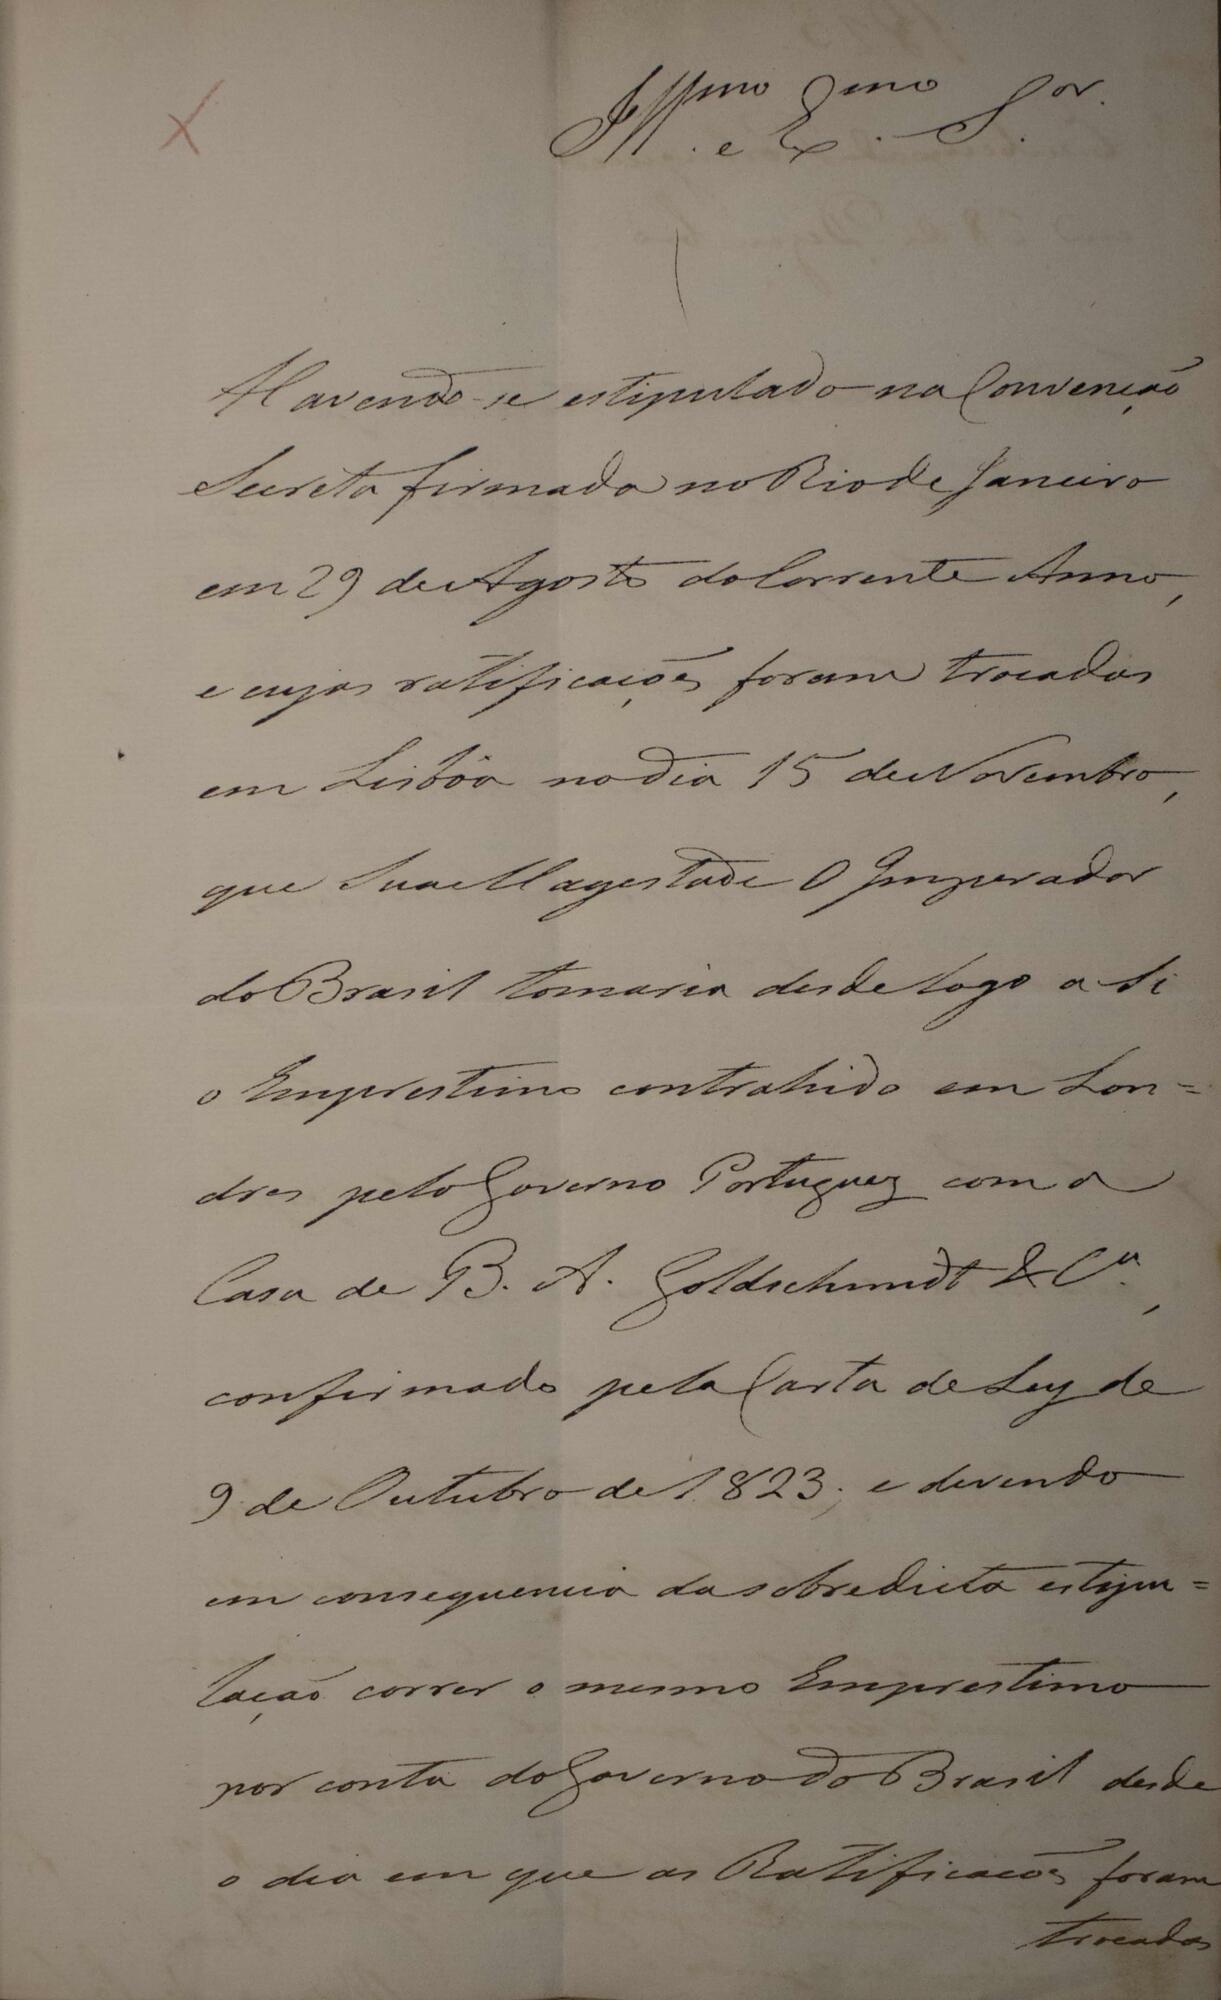 Illmo. e Exmo. Sor.
Havendo-se estipulado na Convenção
Secreta firmada no Rio de Janeiro
em 29 de Agosto do Corrente Anno,
e cujas ratificações foram trocadas
em Lisbôa no dia 15 de Novembro,
que Sua Magestade O Imperador
do Brasil tomaria desde logo a Si
o Emprestimo contrahido em Lon=
dres pelo Governo Portuguez com a
Casa de B. A. Goldschmidt & Ca.,
confirmado pela Carta de Ley de
9 de Outubro de 1823; e devendo
em consequencia da sobredicta estipu=
lação correr o mesmo Emprestimo
por conta do Governo do Brasil desde
o dia em que as Ratificacoẽs foram
trocadas